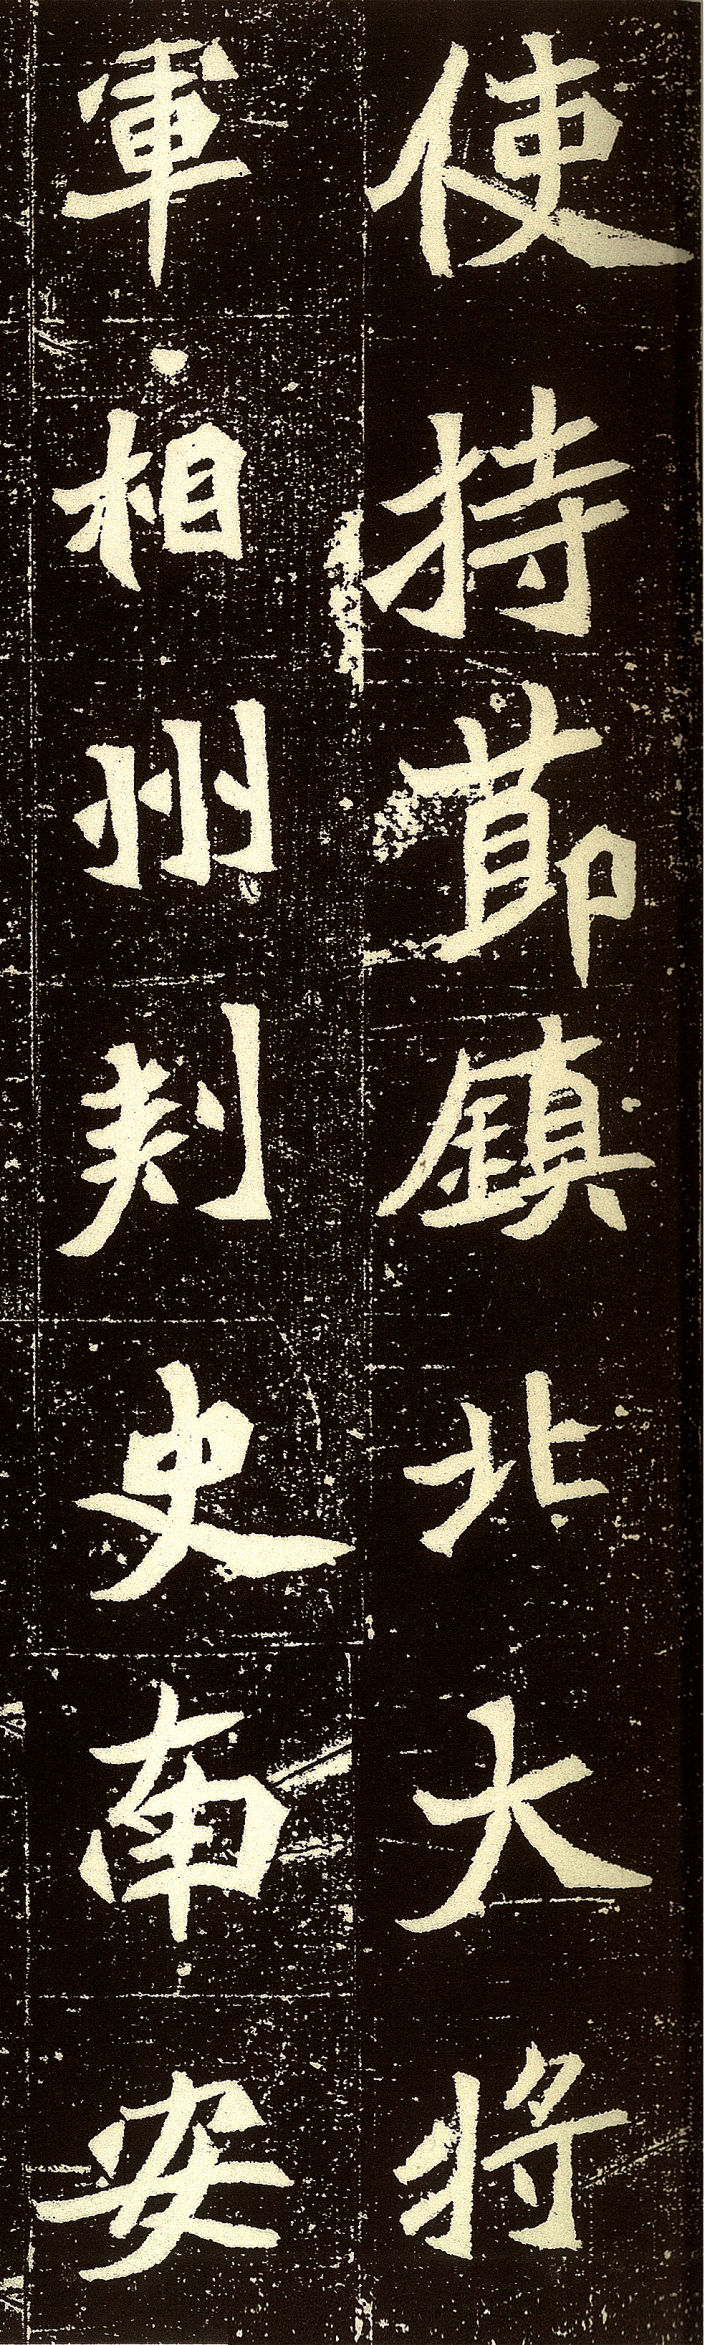 使持節鎮北大將
軍相州刺史南安